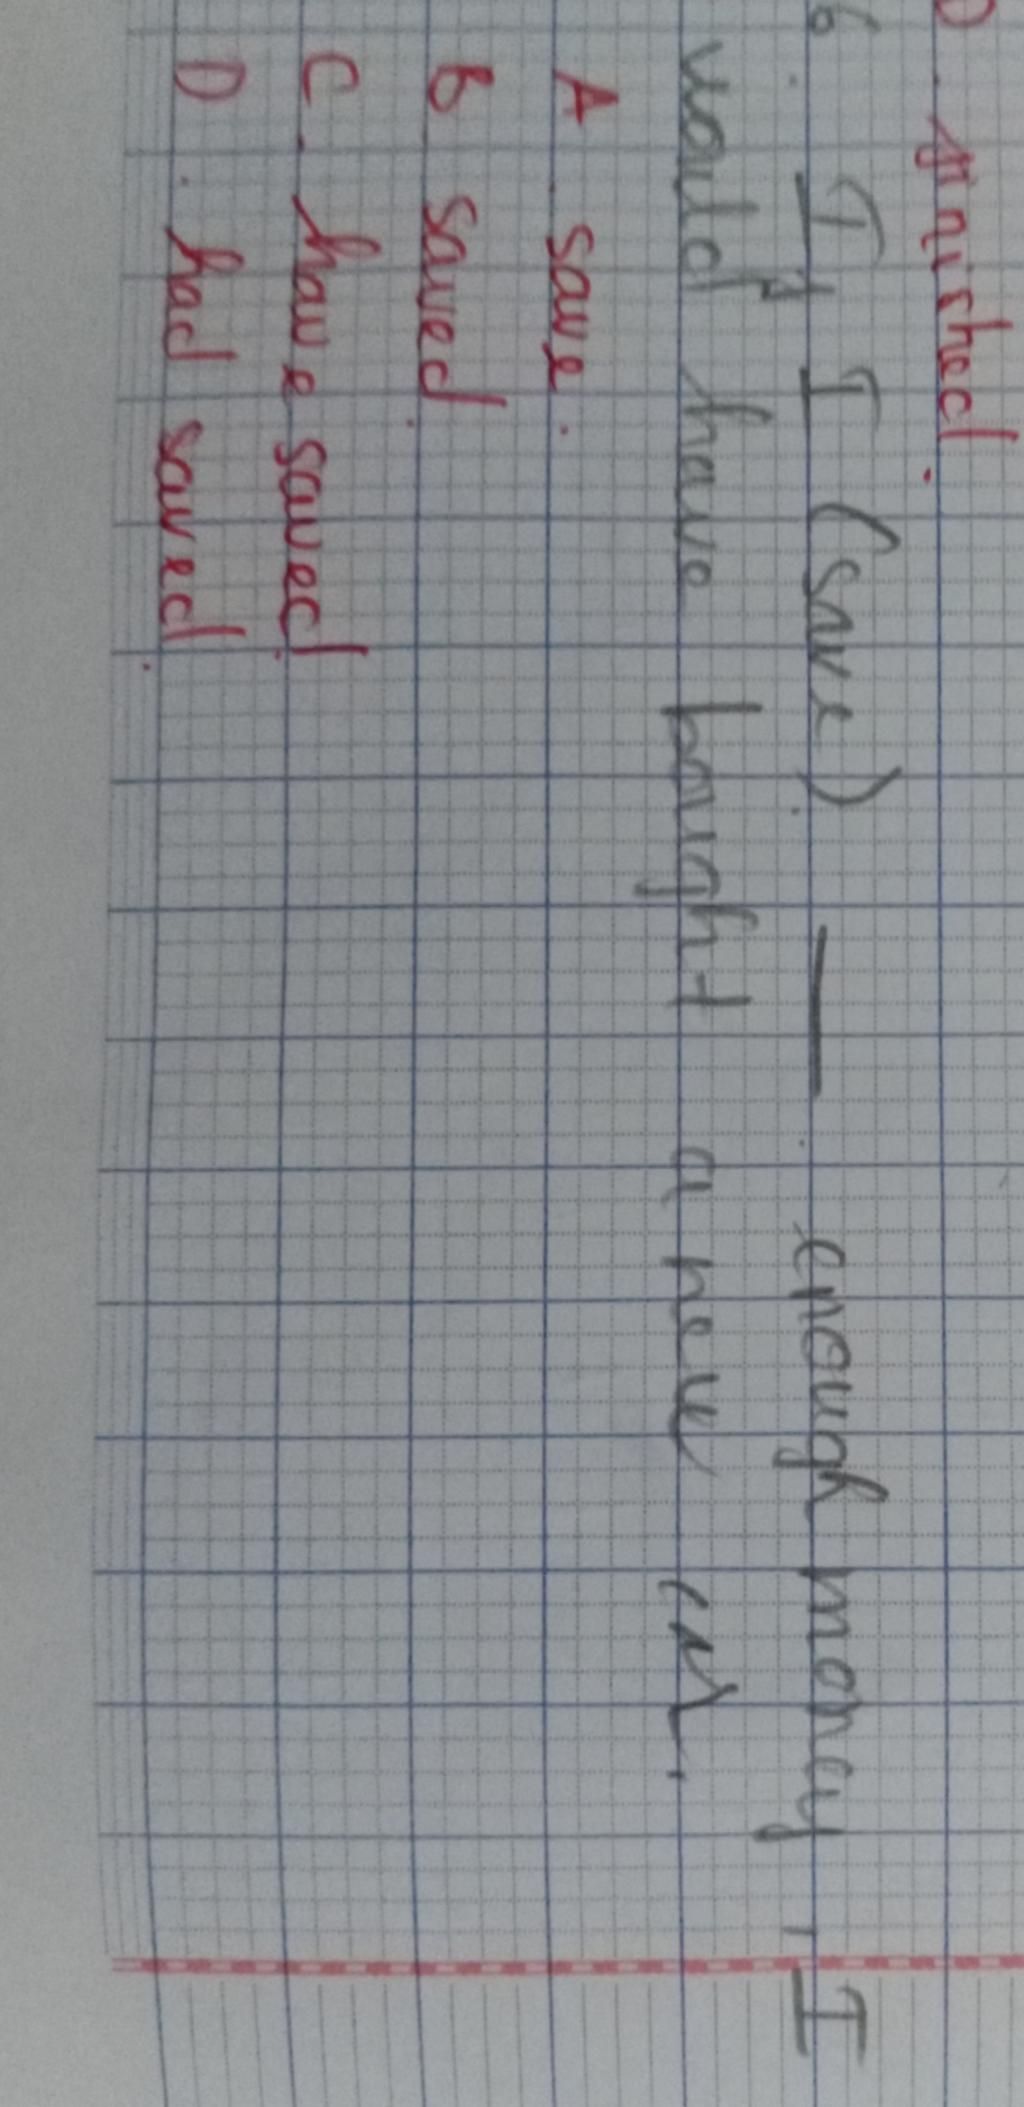 D. finished.
6. If I (save) ___ enough money, I
would have bought a new car.
A. save.
B saved.
C. have saved.
D. had saved.